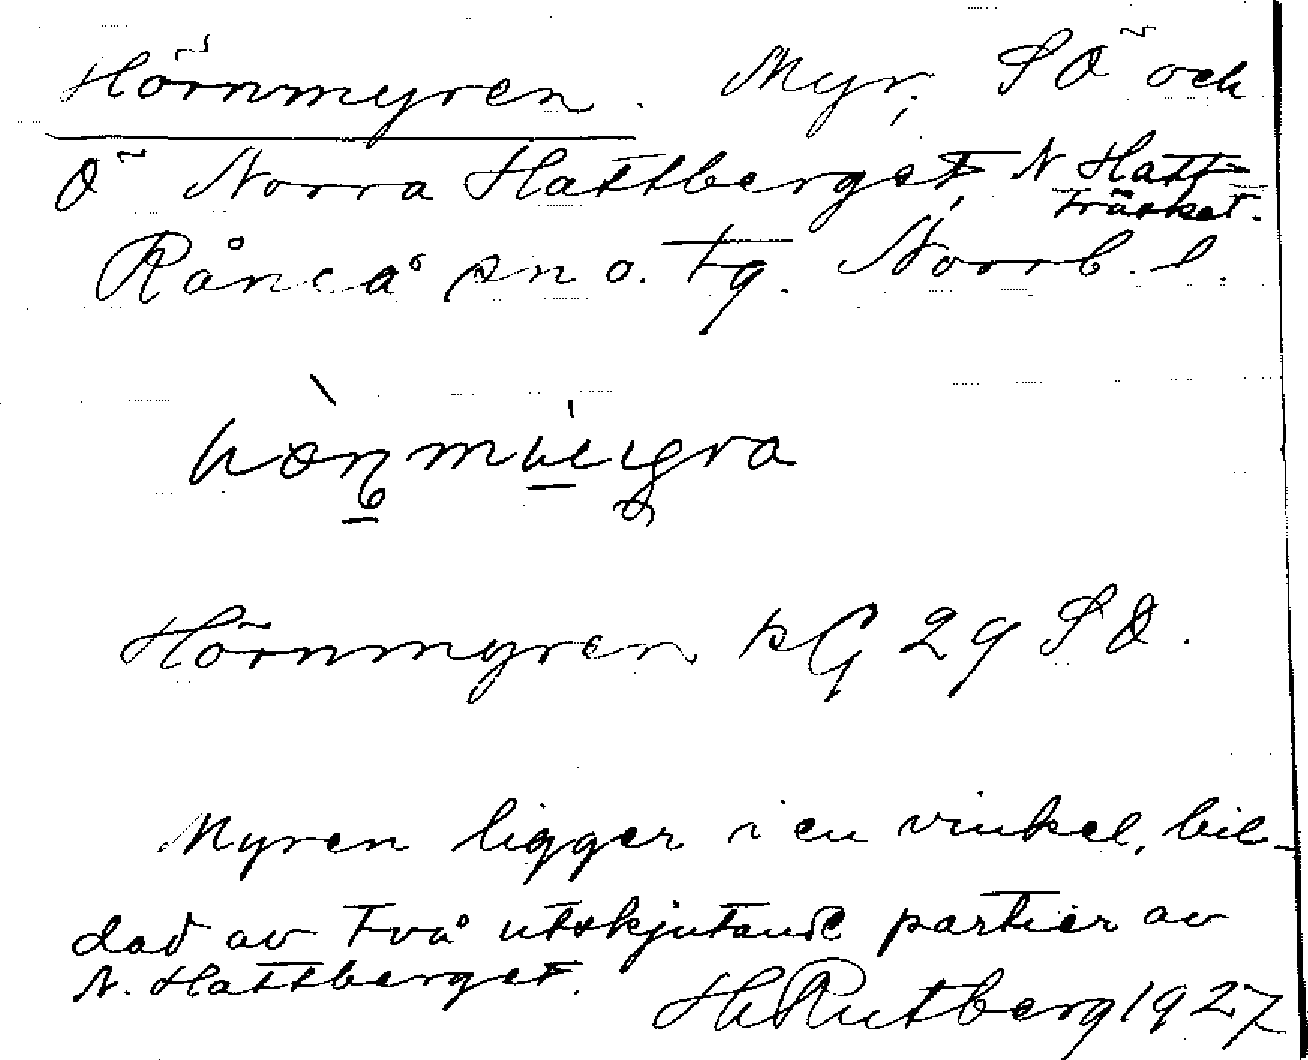 Hörnmyren. Myr, SÖ och
Ö Norra Hattberget, N Hatt-
träsket.
Råneå sn o. tg. Norrb. l.
Hörnmyren kG 29 SÖ.
Myren ligger i en vinkel, bil-
dad av två utskjutande partier av
N. Hattberget.
H Rutberg 1927